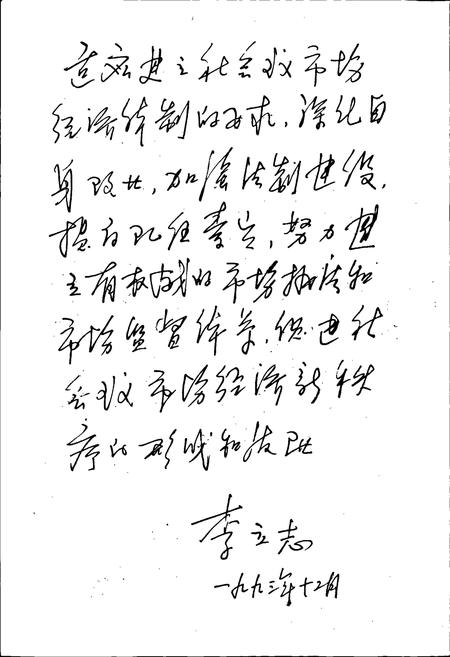 适应建立社会主义市场
经济体制的要求，深化自
身改革，加强法制建设，
提高队伍素质，努力建
立有权威的市场执法和
市场监督体系，促进社
会主义市场经济新秩
序的形成和发展
李立志
一九九三年十二月